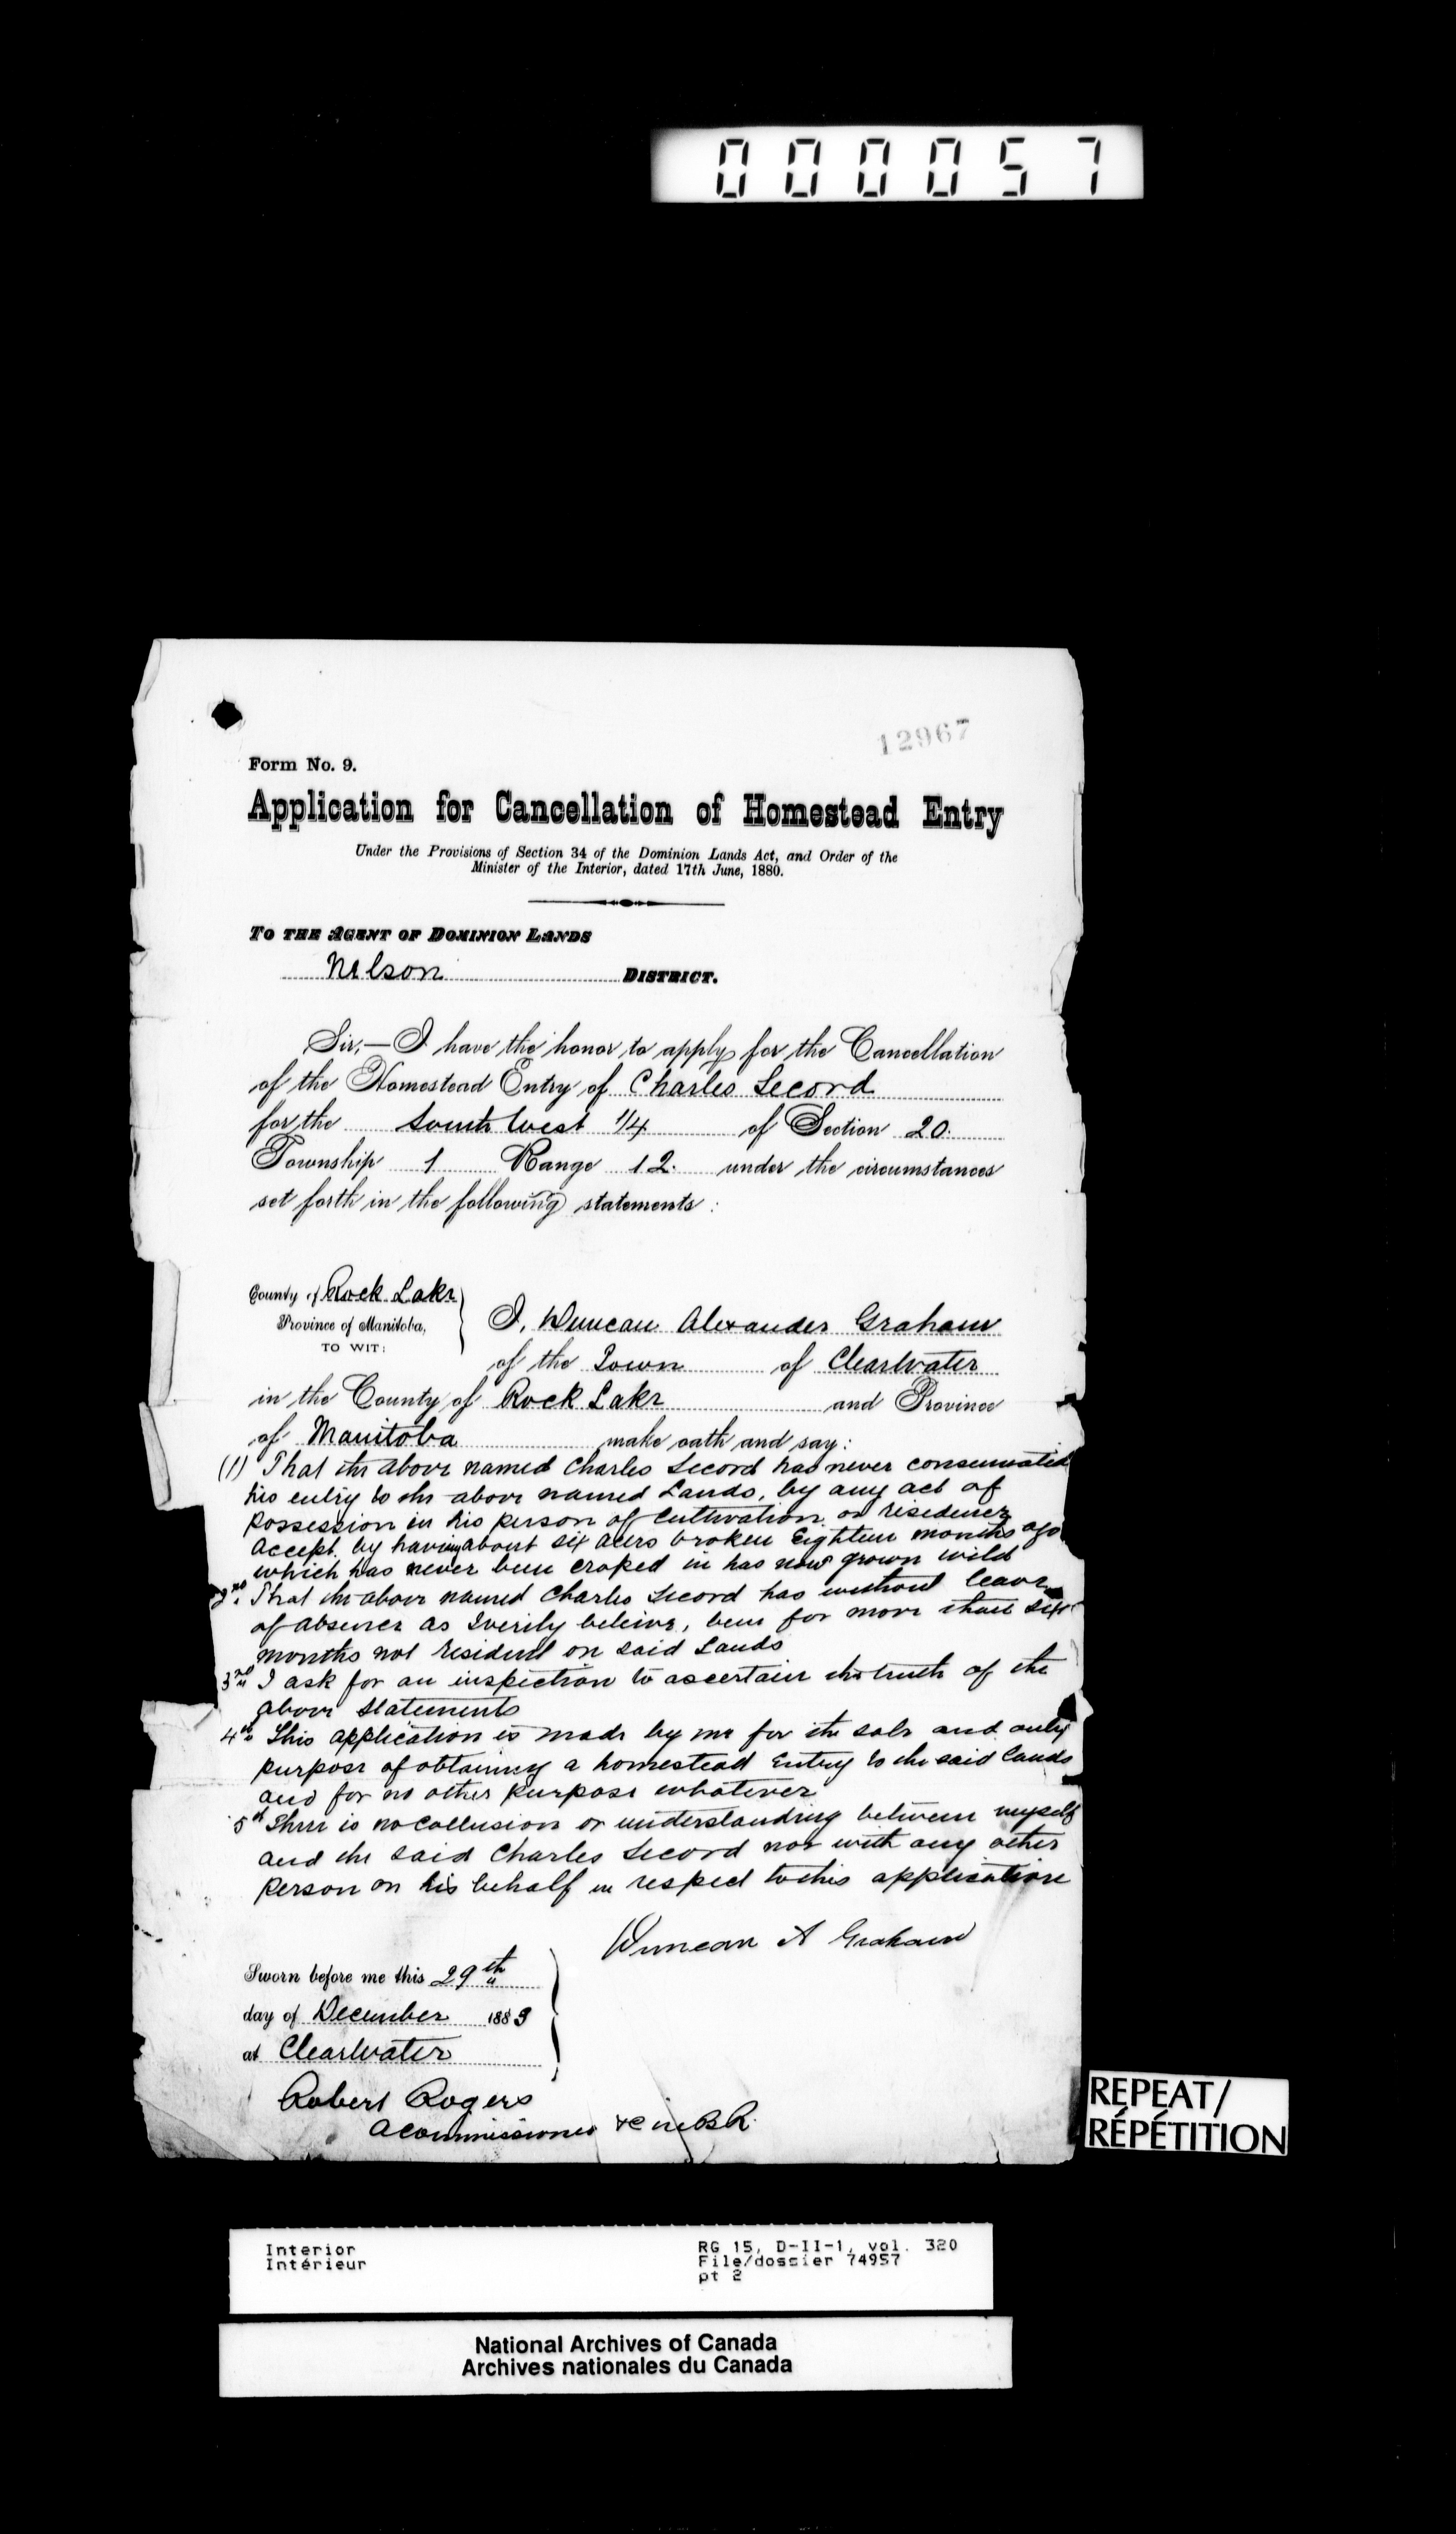 000057
12967
Form No. 9.
Application for Cancellation of Homestead Entry
Under the Provisions of Section 34 of the Dominion Lands Act, and Order of the
Minister of the Interior, dated 17th June, 1880.
To the Agent of Dominion Lands
Nelson District.
Sir,—I have the honor to apply for the Cancellation
of the Homestead Entry of Charles Secord
for the South West 1/4 of Section 20.
Township 1 Range 12. under the circumstances
set forth in the following statements:
County of Rock Lake
Province of Manitoba,
TO WIT:
I, Duncan Alexander Graham
of the Town of Clearwater
in the County of Rock Lake and Province
of Manitoba make oath and say:
(1) That the above named Charles Secord has never consumated
his entry to the above named Lands, by any act of
possession in his person of Cultivation or residence
accept by having about six acers broken Eighteen months ago
which has never been croped in has now grown wild
2nd That the above named Charles Secord has without leave
of absence as I verily beleive, been for more than six
months not resident on said Lands
3rd I ask for an inspection to ascertain the truth of the
above statements
4th This application is made by me for the sole and only
purpose of obtaining a homestead Entry to the said lands
and for no other purpose whatever
5th There is no collusion or understanding between myself
and the said Charles Secord nor with any other
person on his behalf in respect to this application
Duncan A Graham
Sworn before me this 29th
day of December 1883
at Clearwater
Robert Rogers
A Commissioner &c in B R.
REPEAT/
RÉPÉTITION
Interior
Intérieur
RG 15, D-II-1, vol. 320
File/dossier 74957
pt 2
National Archives of Canada
Archives nationales du Canada